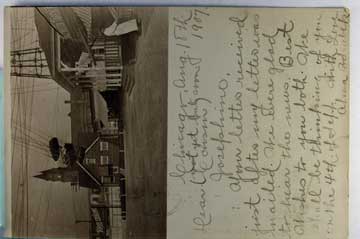 Chicago Aug. 15th
1907.
Dear Cousin
Josephine.
Your letter received
just after my letter was
mailed. We were glad
to hear the news. Best
Wishes to you both. We
shall be thinking of you
on the 4th of Sept. With love
Alma and